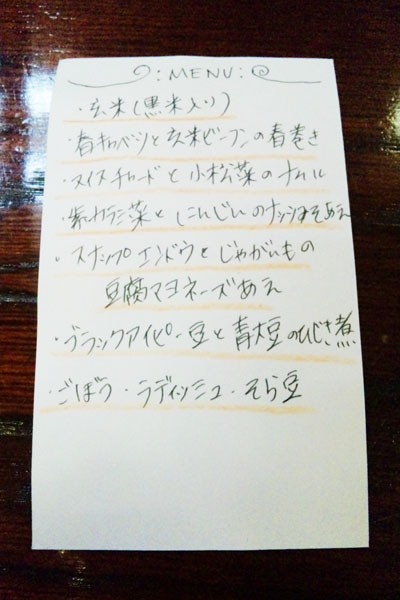 :MENU:
・玄米(黒米入り)
・春キャベツと玄米ビーフンの春巻き
・スイスチャードと小松菜のナムル
・紫カラシ菜とにんじんのナッツみそあえ
・スナップエンドウとじゃがいもの
豆腐マヨネーズあえ
・ブラックアイピー豆と青大豆のひじき煮
・ごぼう・ラディッシュ・そら豆